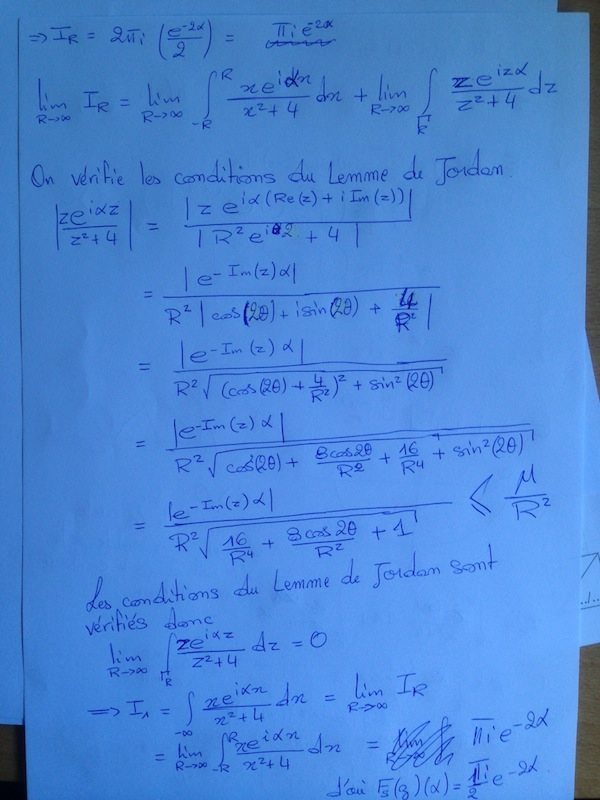 ⇒ I_R = 2πi (e^{-2α}/2) = πi e^{-2α}
lim_{R→∞} I_R = lim_{R→∞} ∫_{-R}^{R} (x e^{iαx})/(x²+4) dx + lim_{R→∞} ∫_{Γ_R} (z e^{izα})/(z²+4) dz
On vérifie les conditions du Lemme de Jordan.
|z e^{iαz}/(z²+4)| = |z e^{iα(Re(z)+i Im(z))}| / |R² e^{iθ2} + 4|
= |e^{-Im(z)α}| / (R² |cos(2θ)+isin(2θ) + 4/R²|)
= |e^{-Im(z)α}| / (R² √((cos(2θ)+4/R²)² + sin²(2θ)))
= |e^{-Im(z)α}| / (R² √(cos²(2θ) + 8cos2θ/R² + 16/R⁴ + sin²(2θ)))
= |e^{-Im(z)α}| / (R² √(16/R⁴ + 8cos2θ/R² + 1)) ≤ M/R²
Les conditions du Lemme de Jordan sont
vérifiés donc
lim_{R→∞} ∫_{Γ_R} (z e^{iαz})/(z²+4) dz = 0
⇒ I₁ = ∫_{-∞} (x e^{iαx})/(x²+4) dx = lim_{R→∞} I_R
= lim_{R→∞} ∫_{-R}^{R} (x e^{iαx})/(x²+4) dx = πi e^{-2α}
d'où F_s(g)(α) = πi/2 e^{-2α}